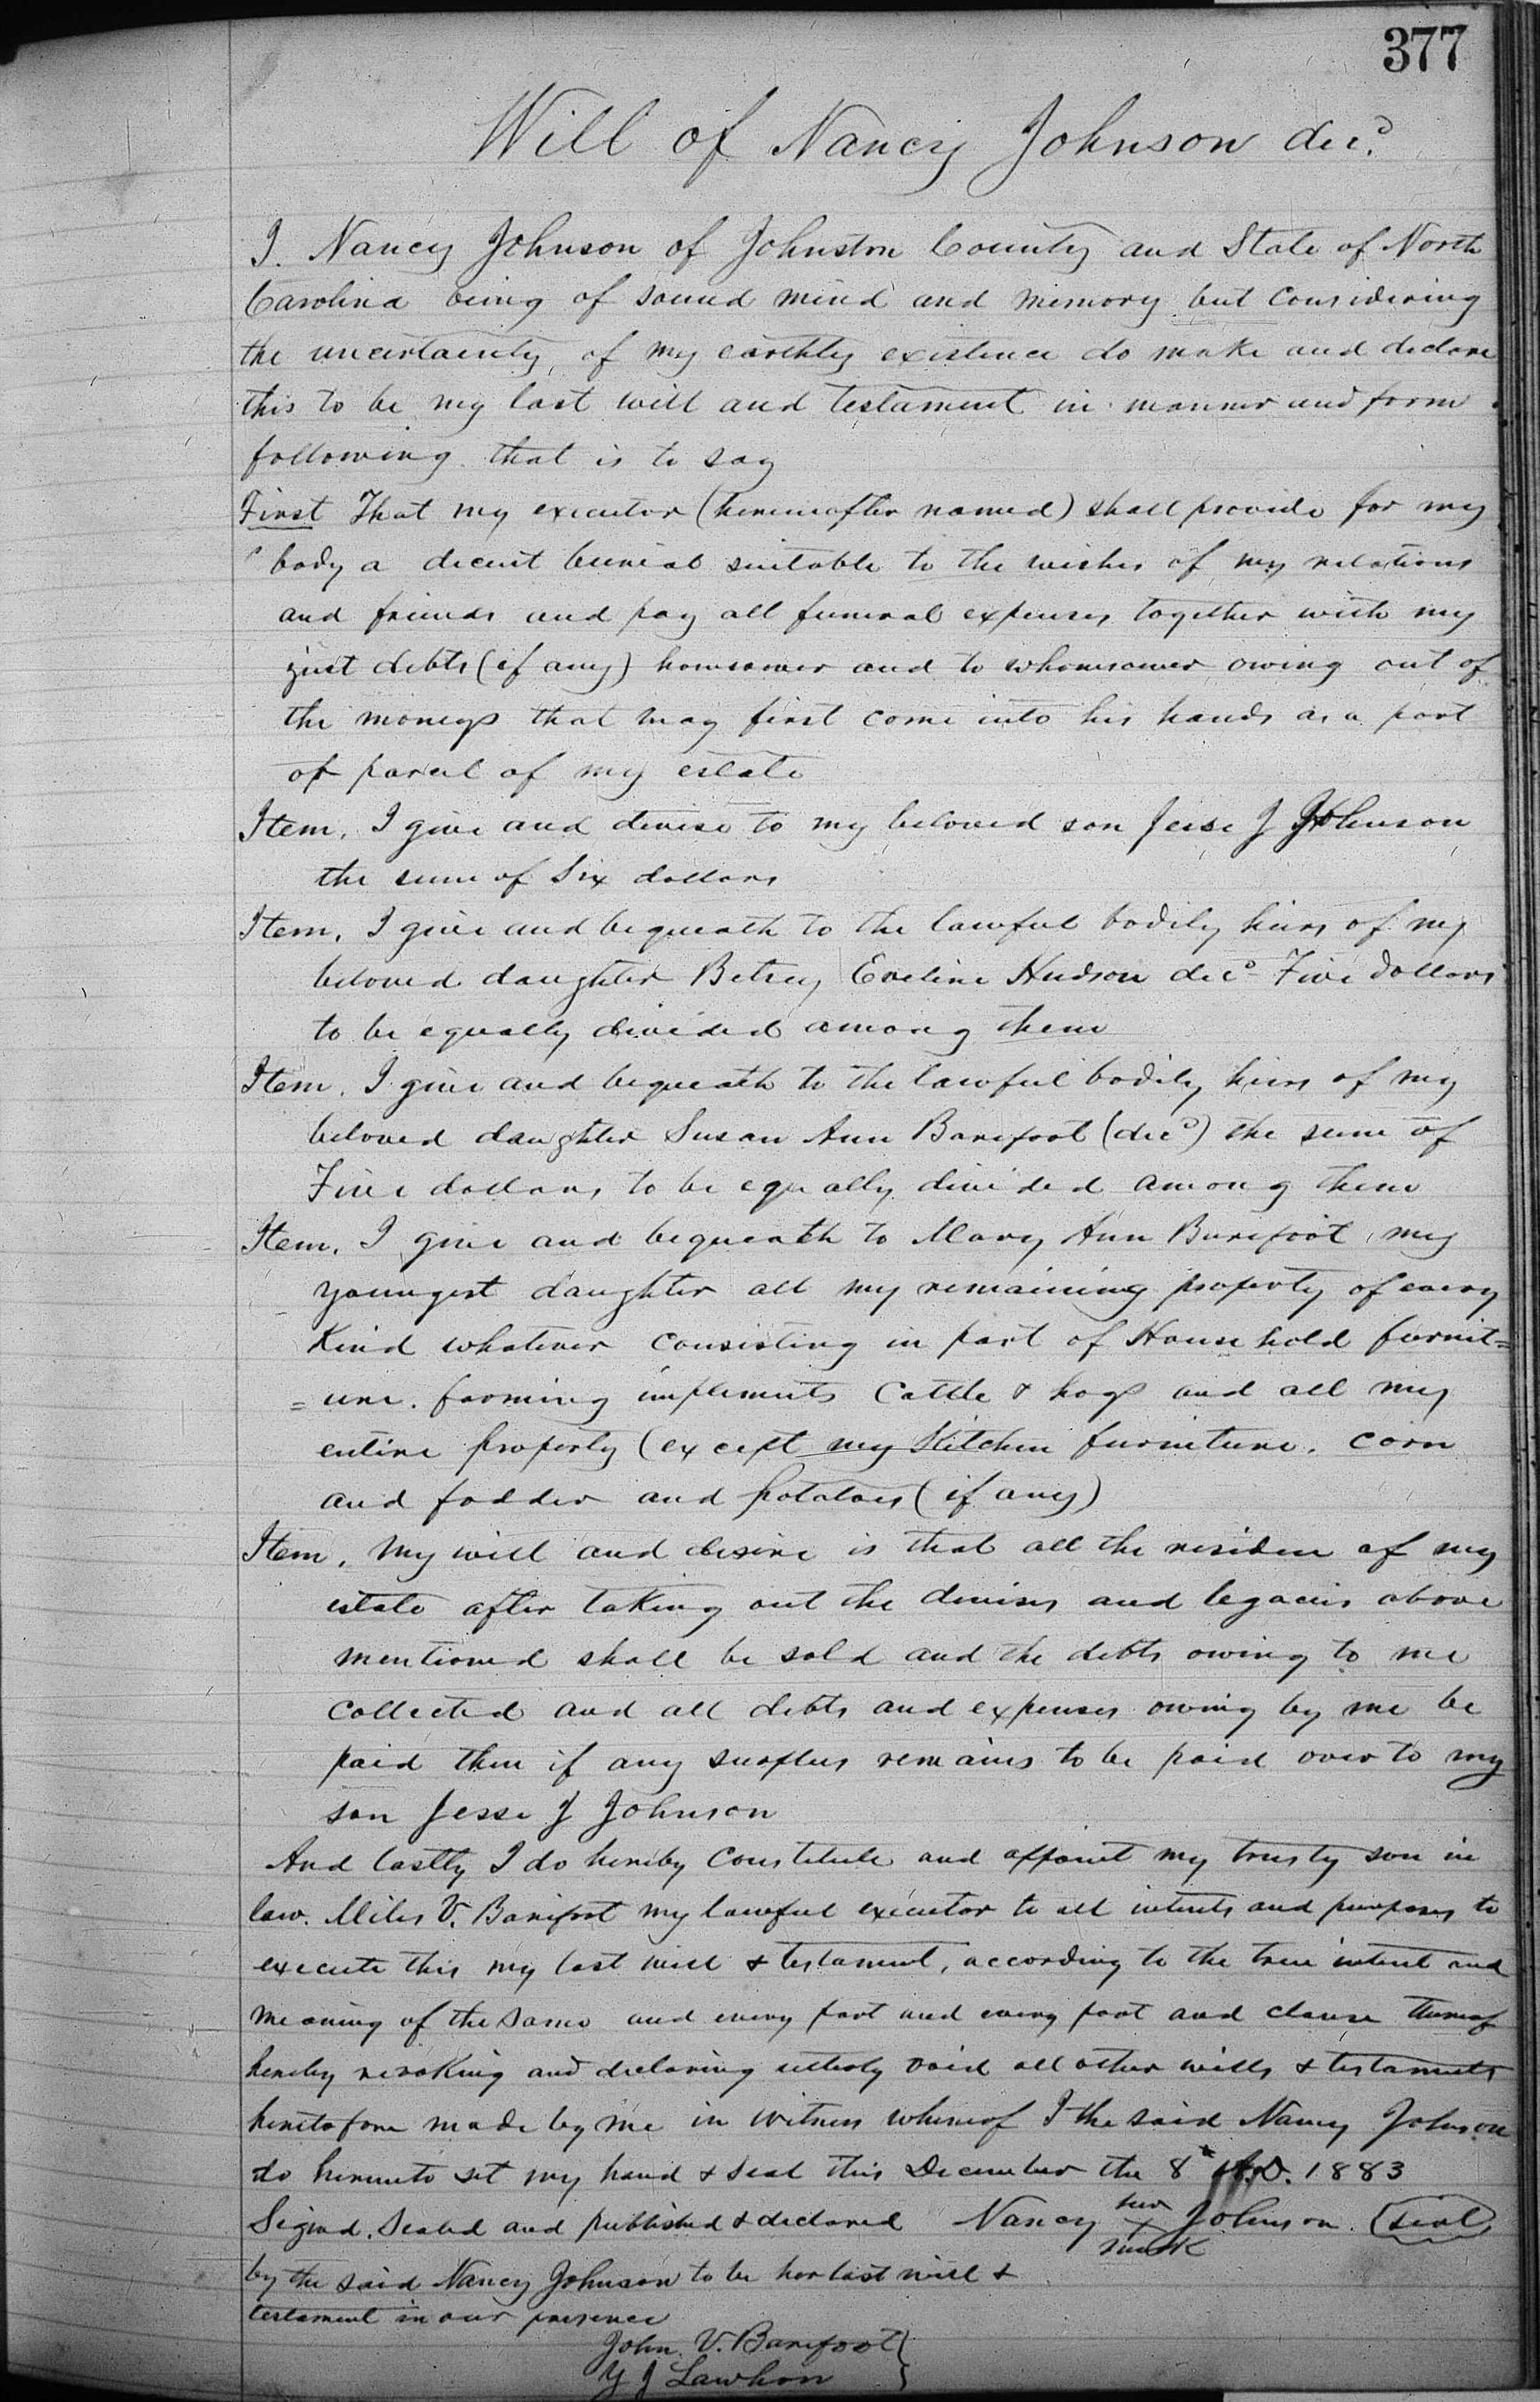 377
Will of Nancy Johnson decd.
I. Nancy Johnson of Johnston County and State of North
Carolina being of sound mind and memory but considering
the uncertainty, of my earthly existence do make and declare
this to be my last will and testament in manner and form
following. that is to say
First That my executor (hereinafter named) shall provide for my
body a decent burial suitable to the wishes of my relations
and friends and pay all funeral expenses together with my
just debts (if any) howsoever and to whomsoever owing out of
the moneys that may first come into his hands as a part
of parcel of my estate
Item. I give and devise to my beloved son Jesse J Johnson
the sum of Six dollars
Item. I give and bequeath to the lawful bodily heirs of my
beloved daughter Betsey Eveline Hudson decd Five dollars
to be equally divided among them
Item. I give and bequeath to the lawful bodily heirs of my
beloved daughter Susan Ann Barefoot (decd) the sum of
Five dollars, to be equally divided among them
Item. I give and bequeath to Mary Ann Barefoot, my
youngest daughter all my remaining property of every
Kind whatever consisting in part of Household furnit=
=ure. farming implements Cattle & hogs and all my
entire property (except my Kitchen furniture. corn
and fodder and potatoes (if any)
Item. My will and desire is that all the residue of my
estate after taking out the devises and legacies above
mentioned shall be sold and the debts owing to me
collected and all debts and expenses owing by me be
paid then if any surplus remains to be paid over to my
son Jesse J Johnson
And lastly I do hereby constitute and appoint my trusty son in
law. Miles V. Barefoot my lawful executor to all intents and purposes to
execute this my last will & testament, according to the true intent and
meaning of the same and every part and every part and clause thereof
hereby revoking and declaring utterly void all other wills & testaments
heretofore made by me in witness whereof I the said Nancy Johnson
do hereunto set my hand & seal this December the 8th A.D. 1883
Signed. Sealed and published & declared Nancy her X mark Johnson (seal)
by the said Nancy Johnson to be her last will &
testament in our presence
John. V. Barefoot }
Y J Lawhon }